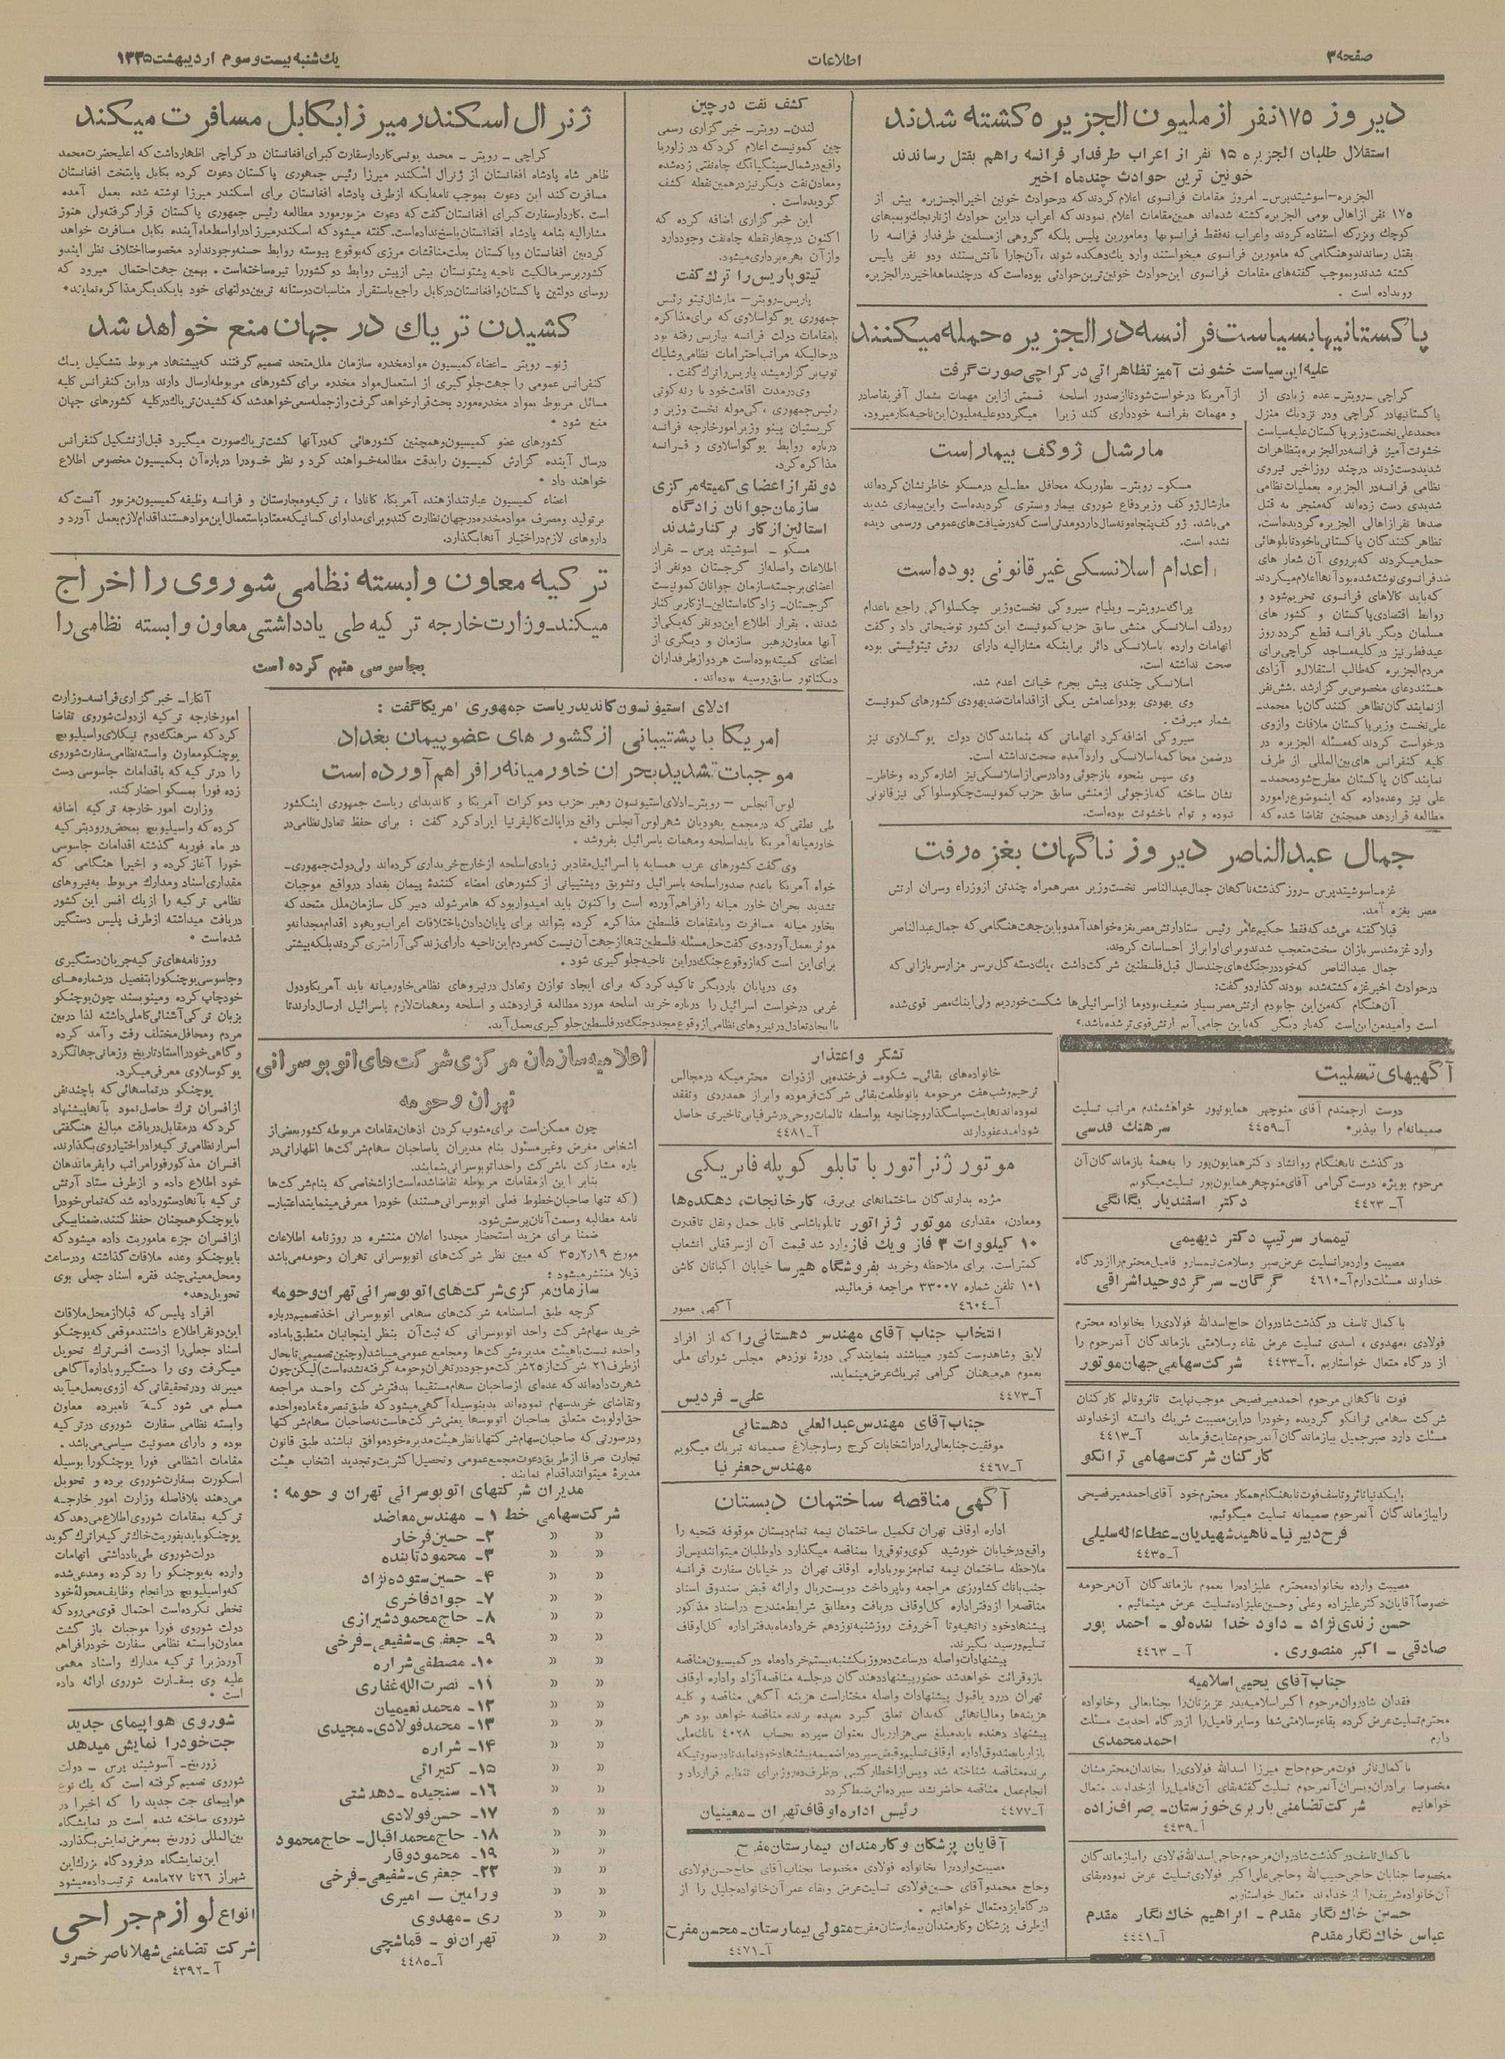 صفحه ۳
اطلاعات
یکشنبه بیست و سوم اردیبهشت ۱۳۳۵
دیروز ۱۷۵ نفر از ملیون الجزیره کشته شدند
استقلال طلبان الجزیره ۱۵ نفر از اعراب طرفدار فرانسه راهم بقتل رساندند
خونین ترین حوادث چندماه اخیر
الجزیره – اسوشیتدپرس – امروز مقامات فرانسوی اعلام کردند که در حوادث خونین اخیر الجزیره بیش از
۱۷۵ نفر از اهالی بومی الجزیره کشته شده‌اند همین مقامات اعلام نمودند که اعراب در این حوادث از نارنجک و بمبهای
کوچک و بزرگ استفاده کردند و اعراب نه فقط فرانسویها و مامورین پلیس بلکه گروهی از مسلمین طرفدار فرانسه را
بقتل رساندند و هنگامی که مامورین فرانسوی میخواستند وارد یک دهکده شوند ، آن جا را بآتش بستند و دو نفر پلیس
کشته شدند و بموجب گفته‌های مقامات فرانسوی این حوادث خونین ترین حوادثی بوده است که در چند ماهه اخیر در الجزیره
رویداده است .
پاکستانیها بسیاست فرانسه در الجزیره حمله میکنند
علیه این سیاست خشونت آمیز تظاهراتی در کراچی صورت گرفت
کراچی – رویتر – عده زیادی از
پاکستانیها در کراچی و در نزدیک منزل
محمدعلی نخست وزیر پاکستان علیه سیاست
خشونت آمیز فرانسه در الجزیره بتظاهرات
شدید دست زدند در چند روز اخیر نیروی
نظامی فرانسه در الجزیره بعملیات نظامی
شدیدی دست زده‌اند که منجر به قتل
صدها نفر از اهالی الجزیره گردیده است.
تظاهر کنندگان پاکستانی با خود تابلوهائی
حمل میکردند که بر روی آن شعار های
ضد فرانسوی نوشته شده بود آنها اعلام میکردند
که باید کالاهای فرانسوی تحریم شود و
روابط اقتصادی پاکستان و کشور های
مسلمان دیگر با فرانسه قطع گردد روز
عید فطر نیز در کلیه مساجد کراچی برای
مردم الجزیره که طالب استقلال و آزادی
هستند دعای مخصوص برگزار شد . شش نفر
از نمایندگان تظاهر کنندگان با محمد –
علی نخست وزیر پاکستان ملاقات و از وی
درخواست کردند که مسئله الجزیره در
کلیه کنفرانس های بین المللی از طرف
نمایندگان پاکستان مطرح شود محمد –
علی نیز وعده داده که اینموضوع را مورد
مطالعه قرار دهد همچنین تقاضا شده که
از آمریکا درخواست شود تا از صدور اسلحه
و مهمات بفرانسه خودداری کند زیرا
قسمتی از این مهمات بشمال آفریقا صادر
میگردد و علیه ملیون این ناحیه بکار میرود.
مارشال ژوکف بیمار است
مسکو – رویتر – بطوریکه محافل مطلع در مسکو خاطر نشان کرده‌اند
مارشال ژوکف وزیر دفاع شوروی بیمار و بستری گردیده است و این بیماری شدید
می‌باشد. ژوکف پنجاه و نه سال دارد و مدتی است که در ضیافت های عمومی و رسمی دیده
نشده است.
اعدام اسلانسکی غیر قانونی بوده است
پراگ – رویتر – ویلیام سیروکی نخست وزیر چکسلواکی راجع باعدام
رودلف اسلانسکی منشی سابق حزب کمونیست این کشور توضیحاتی داد و گفت
اتهامات وارده باسلانسکی دائر بر اینکه مشارالیه دارای روش تیتوئیستی بوده
صحت نداشته است.
اسلانسکی چندی پیش بجرم خیانت اعدام شد.
وی یهودی بود و اعدامش یکی از اقدامات ضد یهودی کشور های کمونیست
بشمار میرفت .
سیروکی اضافه کرد اتهاماتی که بنمایندگان دولت یوگسلاوی نیز
در ضمن محاکمه اسلانسکی وارد آمده صحت نداشته است.
وی سپس بنحوه بازجوئی و دادرسی از اسلانسکی نیز اشاره کرده و خاطر –
نشان ساخته که بازجوئی از منشی سابق حزب کمونیست چکوسلواکی نیز قانونی
نبوده و توام با خشونت بوده است.
جمال عبدالناصر دیروز ناگهان بغزه رفت
غزه – اسوشیتدپرس – روز گذشته ناگهان جمال عبدالناصر نخست وزیر مصر همراه چندتن از وزراء و سران ارتش
مصر بغزه آمد.
قبلا گفته می‌شد که فقط حکیم عامر رئیس ستاد ارتش مصر بغزه خواهد آمد و باین جهت هنگامی که جمال عبدالناصر
وارد غزه شد سربازان سخت متعجب شدند و برای او ابراز احساسات کردند.
جمال عبدالناصر که خود در جنگ های چند سال قبل فلسطین شرکت داشت ، یک دسته گل بر سر مزار سربازانی که
در حوادث اخیر غزه کشته شده بودند گذارد و گفت:
آن هنگام که من این جا بودم ارتش مصر بسیار ضعیف بود و ما از اسرائیلی ها شکست خوردیم ولی اینک مصر قوی شده
است و امید من این است که بار دیگر که باین جا می آیم ارتش قوی تر شده باشد.
کشف نفت در چین
لندن – رویتر – خبرگزاری رسمی
چین کمونیست اعلام کرد که در زلوریا
واقع در شمال سینگیانگ چاه نفتی زده شده
و معادن نفت دیگر نیز در همین نقطه کشف
گردیده است .
این خبرگزاری اضافه کرده که
اکنون در چهار نقطه چاه نفت وجود دارد
و از آن بهره برداری میشود.
تیتو پاریس را ترک گفت
پاریس – رویتر – مارشال تیتو رئیس
جمهوری یوگوسلاوی که برای مذاکره
بامقامات دولت فرانسه بپاریس رفته بود
در حالیکه مراتب احترامات نظامی و شلیک
توپ برگزار میشد پاریس را ترک گفت .
وی در مدت اقامت خود با رنه کوتی
رئیس جمهوری ، گی موله نخست وزیر و
کریستیان پینو وزیر امور خارجه فرانسه
درباره روابط یوگوسلاوی و فرانسه
مذاکره کرد.
دو نفر از اعضای کمیته مرکزی
سازمان جوانان زادگاه
استالین از کار برکنار شدند
مسکو – اسوشیتد پرس – بقرار
اطلاعات واصله از گرجستان دو نفر از
اعضای برجسته سازمان جوانان کمونیست
گرجستان – زادگاه استالین – از کار برکنار
شدند . بقرار اطلاع این دو نفر که یکی از
آنها معاون رهبر سازمان و دیگری از
اعضای کمیته بوده است هر دو از طرفداران
دیکتاتور سابق روسیه بوده‌اند.
ژنرال اسکندر میرزا بکابل مسافرت میکند
کراچی – رویتر – محمد یونسی کاردار سفارت کبرای افغانستان در کراچی اظهار داشت که اعلیحضرت محمد
ظاهر شاه پادشاه افغانستان از ژنرال اسکندر میرزا رئیس جمهوری پاکستان دعوت کرده بکابل پایتخت افغانستان
مسافرت کند این دعوت بموجب نامه‌ایکه از طرف پادشاه افغانستان برای اسکندر میرزا نوشته شده بعمل آمده
است . کاردار سفارت کبرای افغانستان گفت که دعوت مزبور مورد مطالعه رئیس جمهوری پاکستان قرار گرفته ولی هنوز
مشارالیه بنامه پادشاه افغانستان پاسخ نداده است. گفته میشود که اسکندر میرزا در اواسط ماه آینده بکابل مسافرت خواهد
کرد بین افغانستان و پاکستان بعلت مناقشات مرزی که بوقوع پیوسته روابط حسنه وجود ندارد مخصوصا اختلاف نظر ایندو
کشور بر سر مالکیت ناحیه پشتونستان بیش از پیش روابط دو کشور را تیره ساخته است . بهمین جهت احتمال میرود که
روسای دولتین پاکستان و افغانستان در کابل راجع باستقرار مناسبات دوستانه تر بین دولتهای خود بایکدیگر مذاکره نمایند.
کشیدن تریاک در جهان منع خواهد شد
ژنو – رویتر – اعضاء کمیسیون مواد مخدره سازمان ملل متحد تصمیم گرفتند که پیشنهاد مربوط بتشکیل یک
کنفرانس عمومی را جهت جلوگیری از استعمال مواد مخدره برای کشورهای مربوطه ارسال دارند در این کنفرانس کلیه
مسائل مربوط بمواد مخدره مورد بحث قرار خواهد گرفت و از جمله سعی خواهد شد که کشیدن تریاک در کلیه کشورهای جهان
منع شود .
کشورهای عضو کمیسیون و همچنین کشورهائی که در آنها کشت تریاک صورت میگیرد قبل از تشکیل کنفرانس
در سال آینده گزارش کمیسیون را بدقت مطالعه خواهند کرد و نظر خود را درباره آن بکمیسیون مخصوص اطلاع
خواهند داد .
اعضاء کمیسیون عبارتند از هند، آمریکا، کانادا ، ترکیه و مجارستان و فرانسه وظیفه کمیسیون مزبور آنست که
بر تولید و مصرف مواد مخدره در جهان نظارت کند و برای مداوای کسانیکه معتاد باستعمال این مواد هستند اقدام لازم بعمل آورد و
داروهای لازم در اختیار آنها بگذارد.
ترکیه معاون وابسته نظامی شوروی را اخراج
میکند – وزارت خارجه ترکیه طی یادداشتی معاون وابسته نظامی را
بجاسوسی متهم کرده است
آنکارا – خبرگزاری فرانسه – وزارت
امور خارجه ترکیه از دولت شوروی تقاضا
کرد که سرهنگ دوم نیکلای واسیلیویچ
یوچنکو معاون وابسته نظامی سفارت شوروی
را در ترکیه که باقدامات جاسوسی دست
زده فورا بمسکو احضار کند.
وزارت امور خارجه ترکیه اضافه
کرده که واسیلیویچ بمحض ورود بترکیه
در ماه فوریه گذشته اقدامات جاسوسی
خود را آغاز کرده و اخیرا هنگامی که
مقداری اسناد و مدارک مربوط به نیروهای
نظامی ترکیه را از یک افسر این کشور
دریافت میداشته از طرف پلیس دستگیر
شده است .
روزنامه های ترکیه جریان دستگیری
و جاسوسی یوچنکو را بتفصیل در شماره های
خود چاپ کرده و مینویسند چون یوچنکو
بزبان ترکی آشنائی کاملی داشته لذا در بین
مردم و محافل مختلف رفت و آمد کرده
و گاهی خود را استاد تاریخ و زمانی جهانگرد
یوگوسلاوی معرفی میکرد.
یوچنکو در تماسهائی که با چند نفر
از افسران ترک حاصل نمود بآنها پیشنهاد
کرد که در مقابل دریافت مبالغ هنگفتی
اسرار نظامی ترکیه را در اختیار وی بگذارند.
افسران مذکور فورا مراتب را بفرماندهان
خود اطلاع داده و از طرف ستاد ارتش
ترکیه بآنها دستور داده شد که تماس خود را
با یوچنکو همچنان حفظ کنند. ضمنا بیکی
از افسران جزء ماموریت داده میشود که
با یوچنکو وعده ملاقات گذاشته و در ساعت
و محل معینی چند فقره اسناد جعلی بوی
تحویل دهد.
افراد پلیس که قبلا از محل ملاقات
این دو نفر اطلاع داشتند موقعی که یوچنکو
اسناد جعلی را از دست افسر ترک تحویل
میگرفت وی را دستگیر و باداره آگاهی
میبرند و در تحقیقاتی که از وی بعمل میآید
مسلم می شود که نامبرده معاون
وابسته نظامی سفارت شوروی در ترکیه
بوده و دارای مصونیت سیاسی می‌باشد .
مقامات انتظامی فورا یوچنکو را بوسیله
اسکورت بسفارت شوروی برده و تحویل
می‌دهند بلافاصله وزارت امور خارجه
ترکیه بمقامات شوروی اطلاع می‌دهد که
یوچنکو باید بفوریت خاک ترکیه را ترک گوید
دولت شوروی طی یادداشتی اتهامات
وارده به یوچنکو را رد کرده و مدعی شده
که واسیلیویچ در انجام وظایف محوله خود
تخطی نکرده است احتمال قوی می‌رود که
دولت شوروی فورا موجبات بازگشت
معاون وابسته نظامی سفارت خود را فراهم
آورد زیرا ترکیه مدارک و اسناد مهمی
علیه وی بسفارت شوروی ارائه داده
است .
شوروی هواپیمای جدید
جت خود را نمایش میدهد
زوریخ – آسوشیتد پرس – دولت
شوروی تصمیم گرفته است که یک نوع
هواپیمای جت جدید را که اخیرا در
شوروی ساخته شده است در نمایشگاه
بین‌المللی زوریخ بمعرض نمایش بگذارد.
این نمایشگاه در فرودگاه بزرگ این
شهر از ۲۶ تا ۲۷ ماه مه ترتیب داده میشود
انواع لوازم جراحی
شرکت تضامنی شهلا ناصرخسرو
آ – ۴۳۹۲
ادلای استیونسون کاندید ریاست جمهوری امریکا گفت :
امریکا با پشتیبانی از کشورهای عضو پیمان بغداد
موجبات تشدید بحران خاورمیانه را فراهم آورده است
لوس آنجلس – رویتر – ادلای استیونسون رهبر حزب دموکرات آمریکا و کاندیدای ریاست جمهوری اینکشور
طی نطقی که در مجمع یهودیان شهر لوس آنجلس واقع در ایالت کالیفرنیا ایراد کرد گفت : برای حفظ تعادل نظامی در
خاورمیانه آمریکا باید اسلحه و مهمات باسرائیل بفروشد .
وی گفت کشورهای عرب همسایه با اسرائیل مقادیر زیادی اسلحه از خارج خریداری کرده‌اند ولی دولت جمهوری –
خواه آمریکا با عدم صدور اسلحه باسرائیل و تشویق و پشتیبانی از کشورهای امضاء کنندهٔ پیمان بغداد در واقع موجبات
تشدید بحران خاور میانه را فراهم آورده است و اکنون باید امیدوار بود که هامرشولد دبیر کل سازمان ملل متحد که
بخاور میانه مسافرت و بامقامات فلسطین مذاکره کرده بتواند برای پایان دادن باختلافات اعراب و یهود اقدام مجدانه و
موثر بعمل آورد. وی گفت حل مسئله فلسطین تنها از جهت آن نیست که مردم این ناحیه دارای زندگی آرامتری گردند بلکه بیشتر
برای این است که از وقوع جنگ در این ناحیه جلوگیری شود .
وی در پایان بار دیگر تاکید کرد که برای ایجاد توازن و تعادل در نیروهای نظامی خاورمیانه باید آمریکا و دول
غربی درخواست اسرائیل را درباره خرید اسلحه مورد مطالعه قرار دهند و اسلحه و مهمات لازم باسرائیل ارسال دارند تا
با ایجاد تعادل در نیروهای نظامی از وقوع مجدد جنگ در فلسطین جلوگیری بعمل آید.
اعلامیه سازمان مرکزی شرکت های اتوبوسرانی
تهران و حومه
چون ممکن است برای مشوب کردن اذهان مقامات مربوطه کشور بعضی از
اشخاص مغرض و غیر مسئول بنام مدیران یا صاحبان سهام شرکت ها اظهاراتی در
باره مشارکت با شرکت واحد اتوبوسرانی بنمایند.
بنابر این از مقامات مربوطه تقاضا شده است از اشخاصی که بنام شرکت ها
(که تنها صاحبان خطوط فعلی اتوبوسرانی هستند) خود را معرفی مینمایند اعتبار –
نامه مطالبه و سمت آنان پرسش شود.
ضمنا برای مزید استحضار مجددا اعلان منتشره در روزنامه اطلاعات
مورخ ۳۵/۲/۱۹ که مبین نظر شرکت های اتوبوسرانی تهران و حومه می‌باشد
ذیلا منتشر میشود :
سازمان مرکزی شرکت های اتوبوسرانی تهران و حومه
گرچه طبق اساسنامه شرکت های سهامی اتوبوسرانی اخذ تصمیم درباره
خرید سهام شرکت واحد اتوبوسرانی که ثبت آن بنظر اینجانبان منطبق با ماده
واحده نیست با هیئت مدیره شرکت ها و مجامع عمومی میباشد (و چنین تصمیمی تا بحال
از طرف ۲۱ شرکت از ۲۵ شرکت موجود در تهران و حومه گرفته نشده است) لیکن چون
شهرت داده‌اند که عده‌ای از صاحبان سهام مستقیما بدفتر شرکت واحد مراجعه
و تقاضای خرید سهام نموده‌اند بدینوسیله آگهی میشود که طبق تبصره ۴ ماده واحده
حق اولویت متعلق بصاحبان اتوبوسها یعنی شرکت هاست نه صاحبان سهام شرکتها
و در صورتی که صاحبان سهام شرکتها با نظر هیئت مدیره خود موافق نباشند طبق قانون
تجارت صرفا از طریق دعوت مجمع عمومی و تحصیل اکثریت و تجدید انتخاب هیئت
مدیرهٔ میتوانند اقدام نمایند .
مدیران شرکتهای اتوبوسرانی تهران و حومه :
شرکت سهامی خط ۱ – مهندس معاضد
» » ۲– حسین فرخار
» » ۳– محمود تابنده
» » ۴– حسین ستوده نژاد
» » ۷– جواد فاخری
» » ۸– حاج محمود شیرازی
» » ۹– جعفری – شفیعی – فرخی
» » ۱۰– مصطفی شراره
» » ۱۱– نصرت الله غفاری
» » ۱۲– محمد نعیمیان
» » ۱۳– محمد فولادی – مجیدی
» » ۱۴– شراره
» » ۱۵– کتیرائی
» » ۱۶– سنجیده – دهدشتی
» » ۱۷– حسن فولادی
» » ۱۸– حاج محمد اقبال – حاج محمود
» » ۱۹– محمود وقار
» » ۲۲– جعفری – شفیعی – فرخی
» » ورامین – امیری
» » ری – مهدوی
» » تهران نو – قماشچی
آ – ۴۴۸۵
تشکر و اعتذار
خانواده های بقائی – شکوه – فرخنده پی از ذوات محترمیکه در مجالس
ترحیم و شب هفت مرحومه بانو طلعت بقائی شرکت فرموده و ابراز همدردی و تفقد
نموده‌اند نهایت سپاسگذار و چنانچه بواسطه تالمات روحی در شرفیابی تاخیری حاصل
شود امید عفو دارند آ – ۴۴۸۱
موتور ژنراتور با تابلو کوپله فابریکی
مژده بدارندگان ساختمانهای بی برق، کارخانجات، دهکده‌ها
و معادن، مقداری موتور ژنراتور تابلو باشاسی قابل حمل و نقل تا قدرت
۱۰ کیلو وات ۳ فاز و یک فاز وارد شد قیمت آن از سرقفلی انشعاب
کمتر است. برای ملاحظه و خرید بفروشگاه هیرسا خیابان اکباتان کاشی
۱۰۱ تلفن شماره ۳۳۰۰۷ مراجعه فرمائید.
آ – ۴۶۰۴ آگهی مصور
انتخاب جناب آقای مهندس دهستانی را که از افراد
لایق و شاهدوست کشور میباشند بنمایندگی دورهٔ نوزدهم مجلس شورای ملی
بعموم هم میهنان گرامی تبریک عرض مینماید.
آ – ۴۴۷۳ علی – فردیس
جناب آقای مهندس عبدالعلی دهستانی
موفقیت جنابعالی را در انتخابات کرج و ساوجبلاغ صمیمانه تبریک میگویم
آ – ۴۴۶۷ مهندس جعفرنیا
آگهی مناقصه ساختمان دبستان
اداره اوقاف تهران تکمیل ساختمان نیمه تمام دبستان موقوفه فتحیه را
واقع در خیابان خورشید کوی وثوقی را بمناقصه میگذارد داوطلبان میتوانند پس از
ملاحظه ساختمان نیمه تمام مزبور باداره اوقاف تهران در خیابان سفارت فرانسه
جنب بانک کشاورزی مراجعه و با پرداخت دویست ریال و ارائه قبض صندوق اسناد
مناقصه را از دفتر اداره کل اوقاف دریافت و مطابق شرایط مندرج در اسناد مذکور
پیشنهاد خود را تهیه و تا آخر وقت روز شنبه نوزدهم خرداد ماه بدفتر اداره کل اوقاف
تسلیم و رسید بگیرند.
پیشنهادات واصله در ساعت ده روز یکشنبه بیستم خرداد ماه در کمیسیون مناقصه
باز و قرائت خواهد شد حضور پیشنهاد دهندگان در جلسه مناقصه آزاد و اداره اوقاف
تهران در رد یا قبول پیشنهادات واصله مختار است هزینه آگهی مناقصه و کلیه
هزینه‌ها و مالیاتهائی که بدان تعلق گیرد بعهده برنده مناقصه خواهد بود هر
پیشنهاد دهنده باید مبلغ سی هزار ریال بعنوان سپرده بحساب ۴۰۲۸ بانک ملی
بازار یا صندوق اداره اوقاف تسلیم و قبض سپرده را ضمیمه پیشنهاد خود نماید تا در صورتیکه
برنده مناقصه شناخته شد و پس از اخطار کتبی در ظرف ده روز برای تنظیم قرارداد و
انجام عمل مناقصه حاضر نشد سپرده‌اش ضبط گردد
آ – ۴۴۷۷ رئیس اداره اوقاف تهران – معینیان
آقایان پزشکان و کارمندان بیمارستان مفرح
مصیبت وارده را بخانواده فولادی مخصوصا بجناب آقای حاج حسن فولادی
و حاج محمد و آقای حسین فولادی تسلیت عرض و بقاء عمر آن خانواده جلیل را از
درگاه ایزد متعال خواهانیم .
از طرف پزشکان و کارمندان بیمارستان مفرح متولی بیمارستان – محسن مفرح
آ – ۴۴۷۱
آگهیهای تسلیت
دوست ارجمندم آقای منوچهر همایونپور خواهشمندم مراتب تسلیت
صمیمانه‌ام را بپذیر. آ – ۴۴۵۹ سرهنگ قدسی
درگذشت نابهنگام روانشاد دکتر همایون پور را به همهٔ بازماندگان آن
مرحوم بویژه دوست گرامی آقای منوچهر همایون پور تسلیت میگویم
آ – ۴۴۲۳ دکتر اسفندیار یگانگی
تیمسار سرتیپ دکتر دیهیمی
مصیبت وارده را تسلیت عرض صبر و سلامت تیمسار و فامیل محترم را از درگاه
خداوند مسئلت دارم آ – ۴۶۱۰ گرگان – سرگرد وحید اشراقی
با کمال تاسف درگذشت شادروان حاج اسدالله فولادی را بخانواده محترم
فولادی ، مهدوی ، اسدی تسلیت عرض بقاء و سلامتی بازماندگان آنمرحوم را
از درگاه متعال خواستاریم . آ – ۴۴۳۳ شرکت سهامی جهان موتور
فوت ناگهانی مرحوم احمد میرفصیحی موجب نهایت تاثر و تالم کارکنان
شرکت سهامی ترانکو گردیده و خود را در این مصیبت شریک دانسته از خداوند
مسئلت دارد صبر جمیل ببازماندگان آنمرحوم عنایت فرماید آ – ۴۴۱۳
کارکنان شرکت سهامی ترانکو
با یکدنیا تاثر و تاسف فوت نابهنگام همکار محترم خود آقای احمد میرفصیحی
را ببازماندگان آنمرحوم صمیمانه تسلیت میگوئیم.
فرح دبیرنیا – ناهید شهیدیان – عطاءاله سلیلی
آ – ۴۴۳۵
مصیبت وارده بخانواده محترم علیزاده را بعموم بازماندگان آن مرحومه
خصوصاً آقایان دکتر علیزاده و علی و حسین علیزاده تسلیت عرض مینمائیم .
حسن زندی نژاد – داود خدا بنده لو – احمد پور
صادقی – اکبر منصوری . آ – ۴۴۶۳
جناب آقای یحیی اسلامیه
فقدان شادروان مرحوم اکبر اسلامیه پدر عزیزتان را بجنابعالی و خانواده
محترم تسلیت عرض کرده بقاء و سلامتی شما و سایر فامیل را از درگاه احدیت مسئلت
دارم احمد محمدی
با کمال تاثر فوت مرحوم حاج میرزا اسدالله فولادی را بخاندان محترمشان
مخصوصا برادران و پسران آنمرحوم تسلیت گفته بقای آن فامیل را از خداوند متعال
خواهانیم شرکت تضامنی باربری خوزستان – صرافزاده
آ – ۴۴۳۹
با کمال تاسف درگذشت شادروان مرحوم حاجی اسدالله فولادی را ببازماندگان
مخصوصا جنابان حاجی حبیب الله و حاجی علی اکبر فولادی تسلیت عرض نموده بقای
آن خانواده شریف را از خداوند متعال خواستاریم
حسن خاک نگار مقدم – ابراهیم خاک نگار مقدم
عباس خاک نگار مقدم آ – ۴۴۴۱